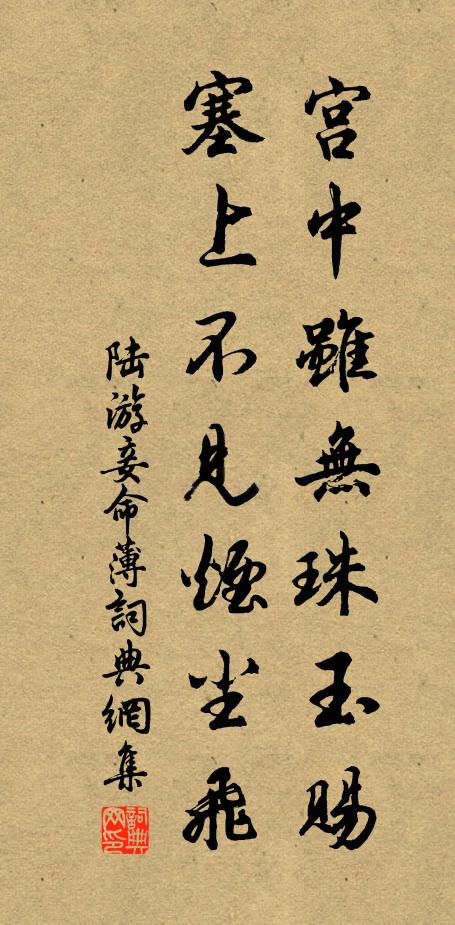 宫中雖無珠玉賜
塞上不見煙尘飛
陆游妾命薄詞典網集
詞典網印